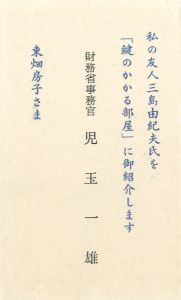 私の友人三島由紀夫氏を
「鍵のかかる部屋」に御紹介します
財務省事務官
児玉一雄
東畑房子さま